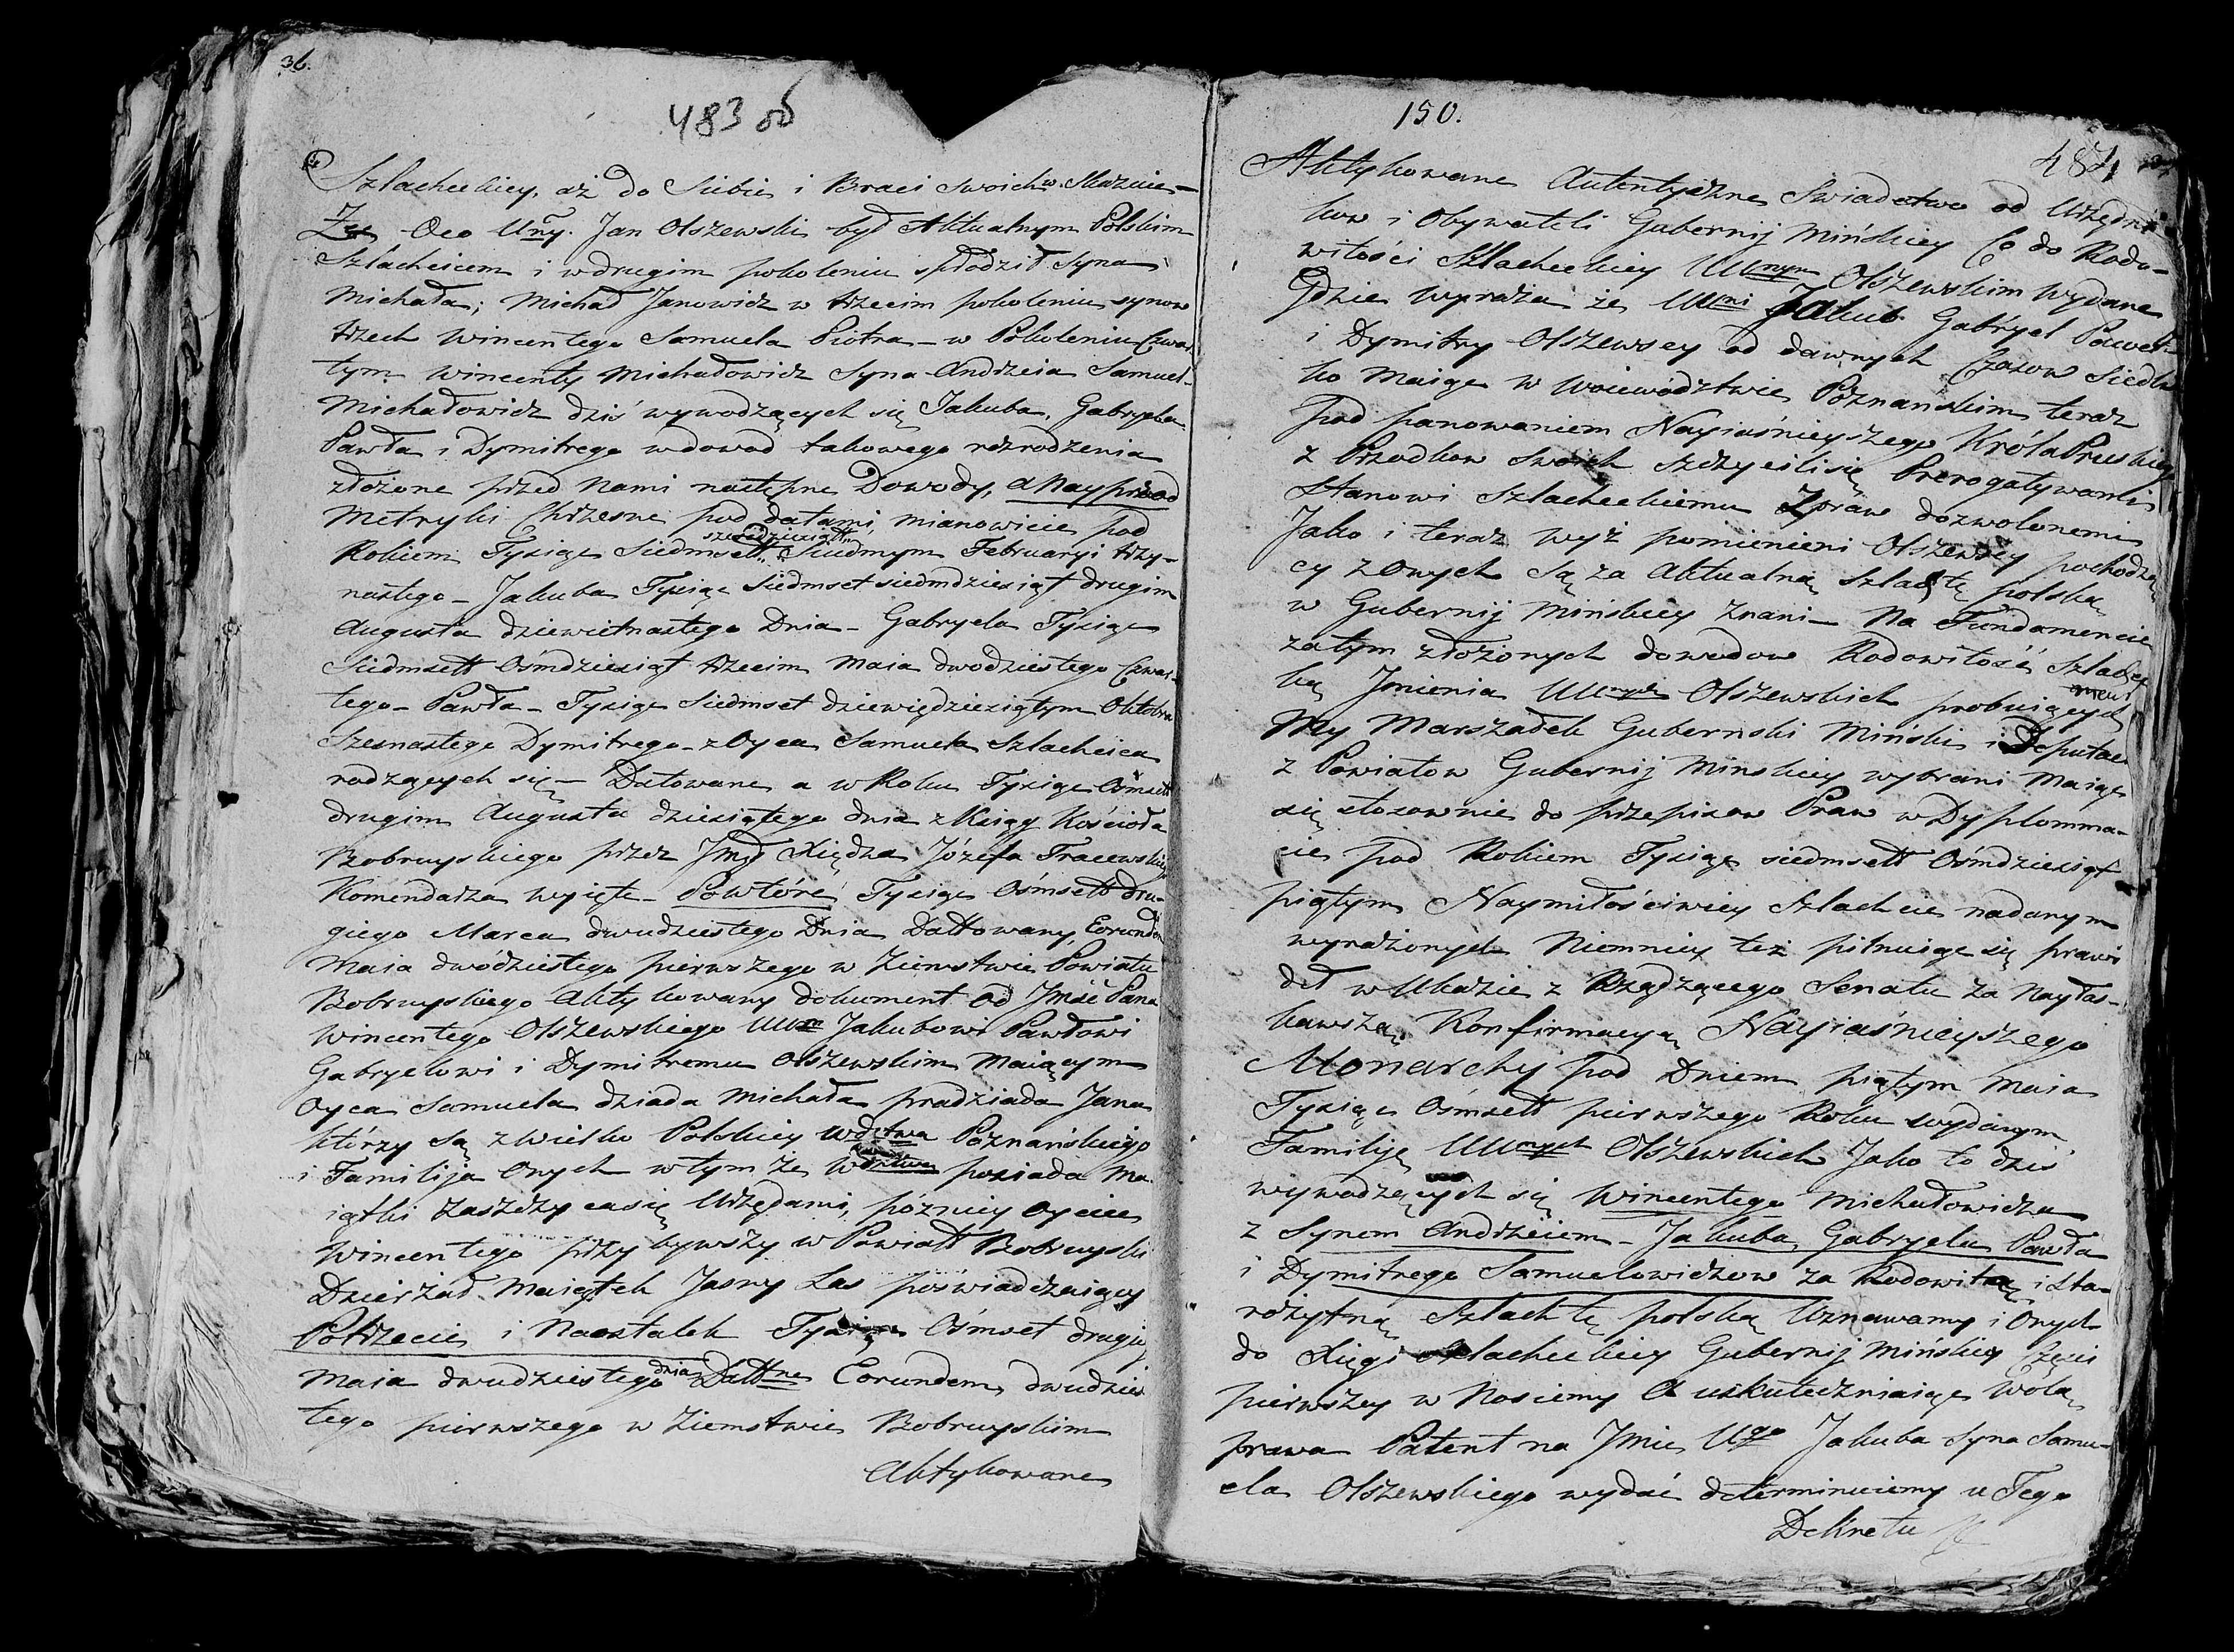 36.
483 об
Szlacheckiey, aż do Siebie i Braci Swoich w. Skazuie-
Że Oco Uny. Jan Olszewski był Aktualnym Polskim
Szlachcicem i w drugim pokoleniu spłodził Syna
Michała; Michał Janowicz w trzecim pokoleniu synow
trzech Wincentego Samuela Piotra - w Pokoleniu Czwar-
tym Wincenty Michałowicz Syna Andrzeia Samuel-
Michałowicz dziś wywodzących się Jakuba, Gabryela
Pawła i Dymitrego w dowod takowego rozrodzenia
złożone przed Nami następne Dowody, a Nayprzod
Metryki Chrzesne pod datami, mianowicie pod
Rokiem Tysiąc Siedmsett sześcdziesiąt Siudmym Februaryi trzy-
nastego - Jakuba Tysiąc Siedmset siedmdziesiąt drugim
Augusta dziewietnastego Dnia - Gabryela Tysiąc
Siedmsett Ośmdziesiąt trzecim Maia dwodziestego Czwar-
tego - Pawła - Tysiąc Siedmset dziewiędziesiątym Oktobra
Szesnastego Dymitrego - z Oyca Samuela Szlachcica
rodzących się - Datowane a w Roku Tysiąc Ośmsett
drugim Augusta dziesiątego dnia z Xiąg Kościoła
Bobruyskiego przez Jmę Xiędza Józefa Tracewskiego
Komendarza wyięte - Powtóre Tysiąc Ośmsett dru-
giego Marca dwudziestego Dnia Dattowany, Eorundem
Maia dwódziestego pierwszego w Ziemstwie Powiatu
Bobruyskiego Aktykowany dokument od Jmść Pana
Wincentego Olszewskiego UUm Jakubowi Pawłowi
Gabryelowi i Dymitremu Olszewskim Maiącym
Oyca Samuela dziada Michała pradziada Jana
którzy są z Wielko Polskiey Wdztwa Poznańskiego
i Familija Onych w tym że Wdztwie posiada Ma-
iątki zaszczyca się Urzędami, pózniey oyciec
Wincentego przybywszy w Powiatt Bobruyski
Dzierżał Maiątek Jasny Las poświadczaiący
Potrzecie i Naostatek Tysiąc Ośmset drugiey
Maia dwudziestego dnia Dattne Eorundem dwudzies
tego pierwszego w Ziemstwie Bobruyskim
Aktykowane
150.
484
Aktykowane Autentyczne Swiadectwo od Urzędni
kow i Obywateli Gubernij Mińskiey Co do Rodo-
witości Szlacheckiey UUnym Olszewskim Wydane
Gdzie wyraża że UUni Jakub Gabryel Paweł
i Dymitry Olszewscy od dawnych Czasow Siedli-
ko Maiąc w Woiewództwie Poznańskim teraz
pod panowaniem Nayiaśnieyszego Króla Pruskiey
z Przodkow Swoich szczycili się Prerogatywami
Stanowi Szlacheckiemu Zpraw dozwolonemi
Jako i teraz wyż pomienieni Olszewscy pochodzą
cy z Onych są za Aktualną Szlachtę polską
w Gubernij Mińskiey Znani - Na Fundamencie
zatym złożonych dowodow Rodowitość Szlachec
ką Jmienia UUnych Olszewskich probuiących
My Marszałek Gubernski Miński i Deputaci
z Powiatow Gubernij Minskiey wybrani Maiąc
się stosownie do przepisow Praw w Dyplomma-
cie pod Rokiem Tysiąc siedmsett Ośmdziesiąt
piątym Naymiłościwiey Szlachcie nadanym
wyrażonych Niemniey też pilnuiąc się prawi
deł w Ukazie z Rządzącego Senatu za Nayłas-
kawszą Konfirmacyą Nayiaśnieyszego
Monarchy pod Dniem piątym Maia
Tysiąc Ośmsett pierwszego Roku wydanym
Familję UUnych Olszewskich Jako to dziś
wywodzących się Wincentego Michałowicza
z Synem Andrzeiem - Jakuba, Gabryela Pawła
i Dymitrego Samuelowiczow za Rodowitą i sta-
rożytną Szlachtę polską Uznawamy i Onych
do Xięgi Szlacheckiey Gubernij Mińskiey Części
pierwszey w Nosiemy A uskuteczniaiąc Wolą
prawa Patent na Jmie Ugo Jakuba Syna Samu-
ela Olszewskiego wydać determinuiemy u Tego
Dekretu